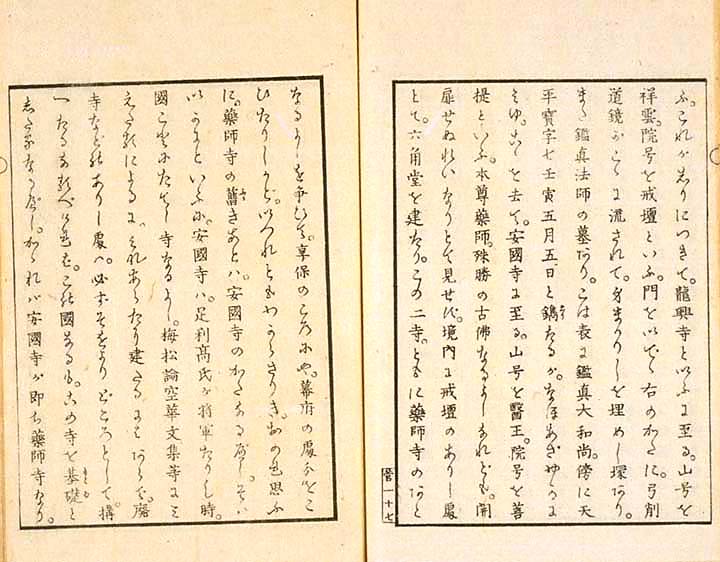 ふ。これがありにつきて。龍興寺といふに至る。山号を
祥雲。院号を戒壇といふ。門を以でゝ右のかたに。弓削
道鏡がこゝに流されて。身まかりしを埋めし塚あり。
また鑑真法師の墓あり。こは表に鑑真大和尚。傍に天
平寳字七壬寅五月五日と鐫たるが。なほあざやかに
みゆ。こゝを去て。安國寺に至る。山号を醫王。院号を善
提といふ。本尊藥師。殊勝の古佛なるよしなれども。開
扉せぬれいなりとて見せず。境内に戒壇のありし處
とて。六角堂を建たり。この二寺。ともに藥師寺のあと
管一十七
なるよしを争ひて。享保のころにや。幕府の處分をこ
ひたりしかど。いづれともわからざりき。おのれ思ふ
に。藥師寺の舊きあとハ。安國寺のかたなるべし。そハ
いかにといふに。安國寺ハ。足利髙氏が将軍たりし時。
國ごとにたてし寺なるよし。梅松論空華文集等にみ
えたるによるに。それあらたに建たるにはあらで。廢
寺などのありし處ハ。必ずそをよりどころとして。搆
へたるなるべく思はる。この國なるも。この寺を基礎と
したるなるべし。かゝれバ安國寺が即ち藥師寺なり。